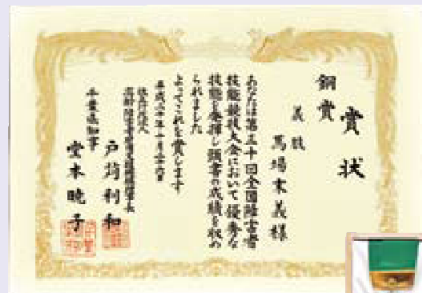 賞状
銅賞
義肢
馬場末義様
あなたは第三十回全国障害者
技能競技大会において優秀な
技能を発揮し頭書の成績を収め
られました
よってこれを賞します
平成二十年十月二十六日
独立行政法人
高齢・障害者雇用支援機構理事長
戸苅利和
千葉県知事
堂本暁子